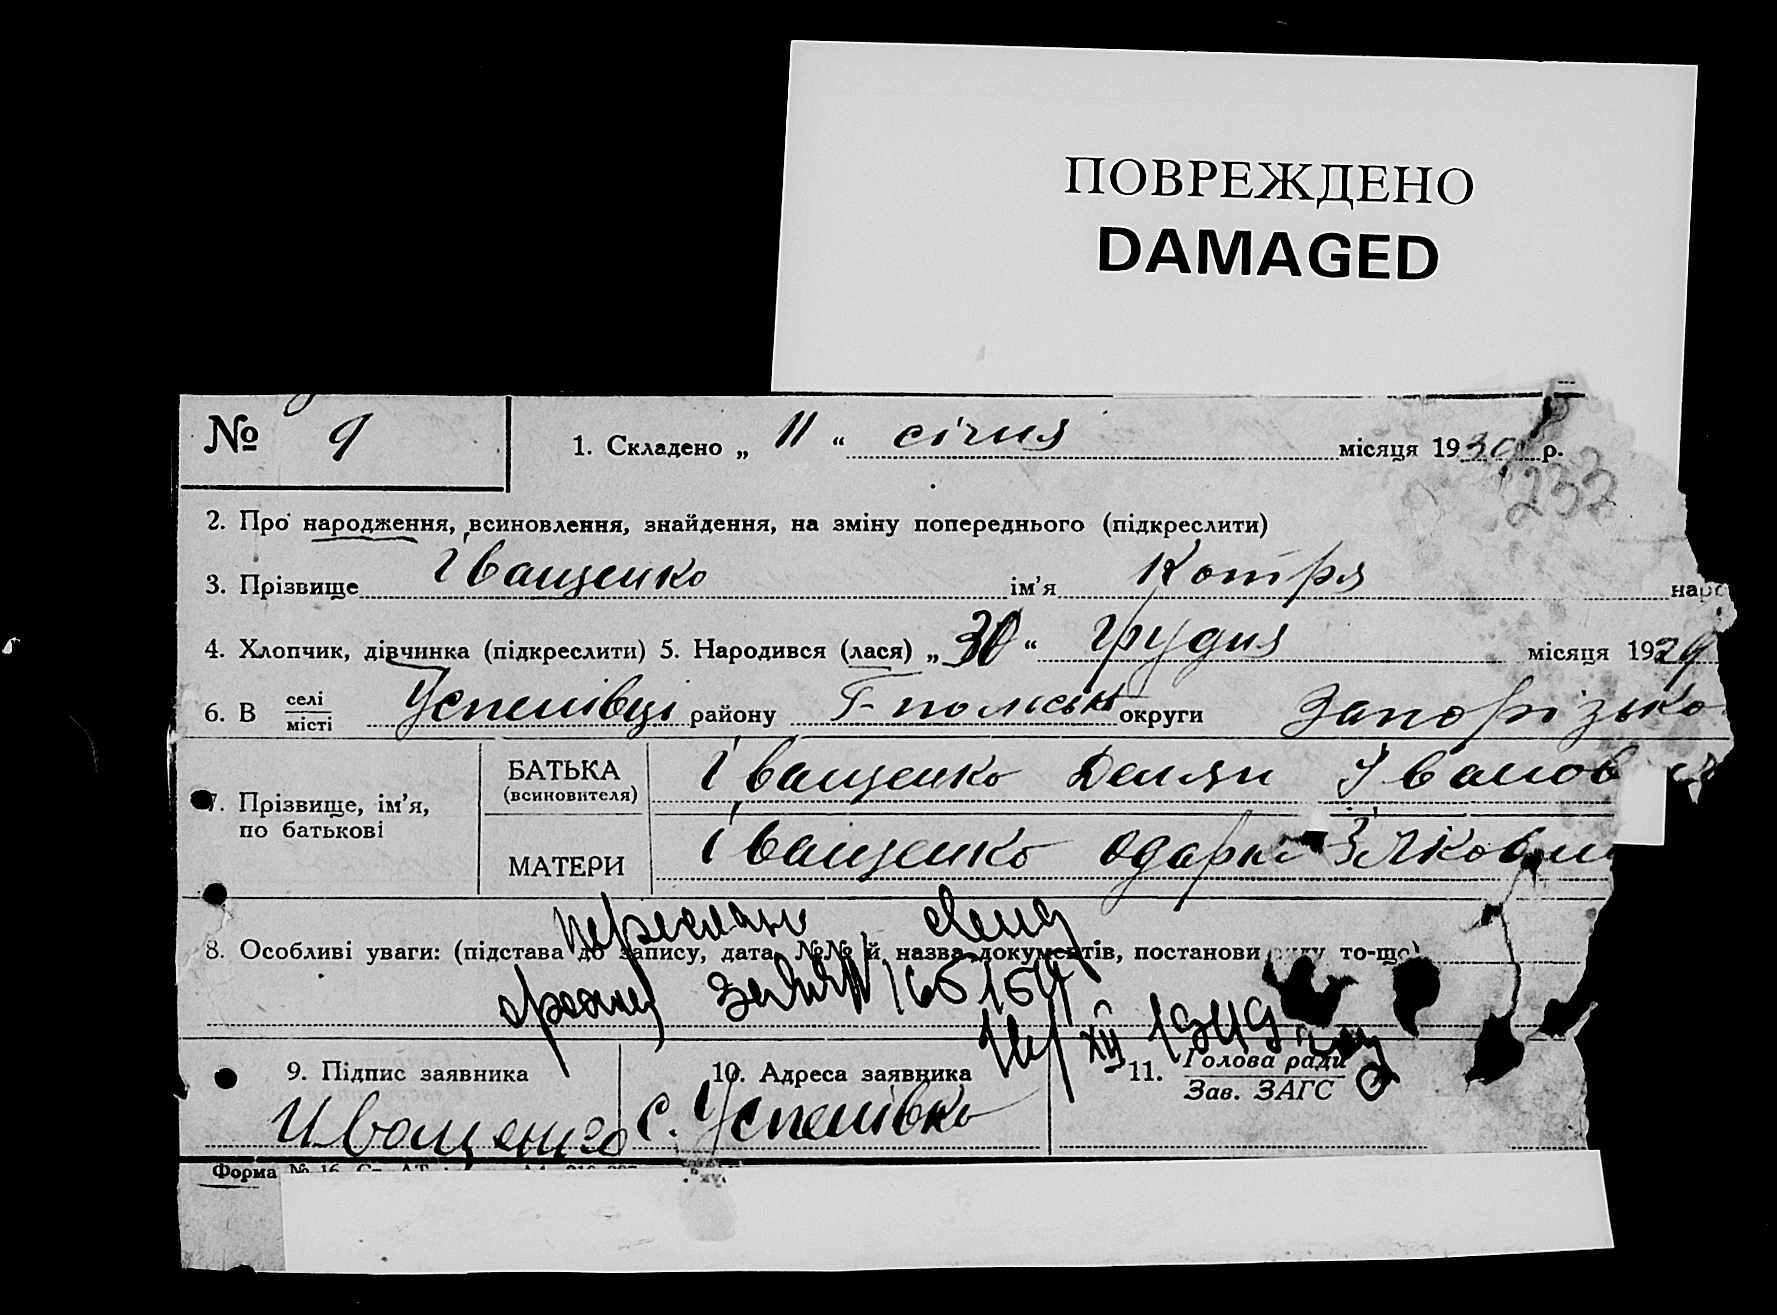 ПОВРЕЖДЕНО
DAMAGED
№ 9
1. Складено „ 11 “ січня місяця 1930 р.
232
2. Про народження, всиновлення, знайдення, на зміну попереднього (підкреслити)
3. Прізвище Іващенко ім’я Котря наро
4. Хлопчик, дівчинка (підкреслити) 5. Народився (лася) „ 30 “ грудня місяця 1929
6. В селі місті Успенівці району Г-польськ округи Запорізько
7. Прізвище, ім’я, по батькові
БАТЬКА (всиновителя) Іващенко Демян Іванов
МАТЕРИ Іващенко Одарка Яковл
8. Особливі уваги: (підстава до запису, дата, №№ й назва документів, постанови суду то-що)
1949
9. Підпис заявника 10. Адреса заявника 11. Голова ради Зав. ЗАГС
Иващенко с. Успенівка
Форма № 16.